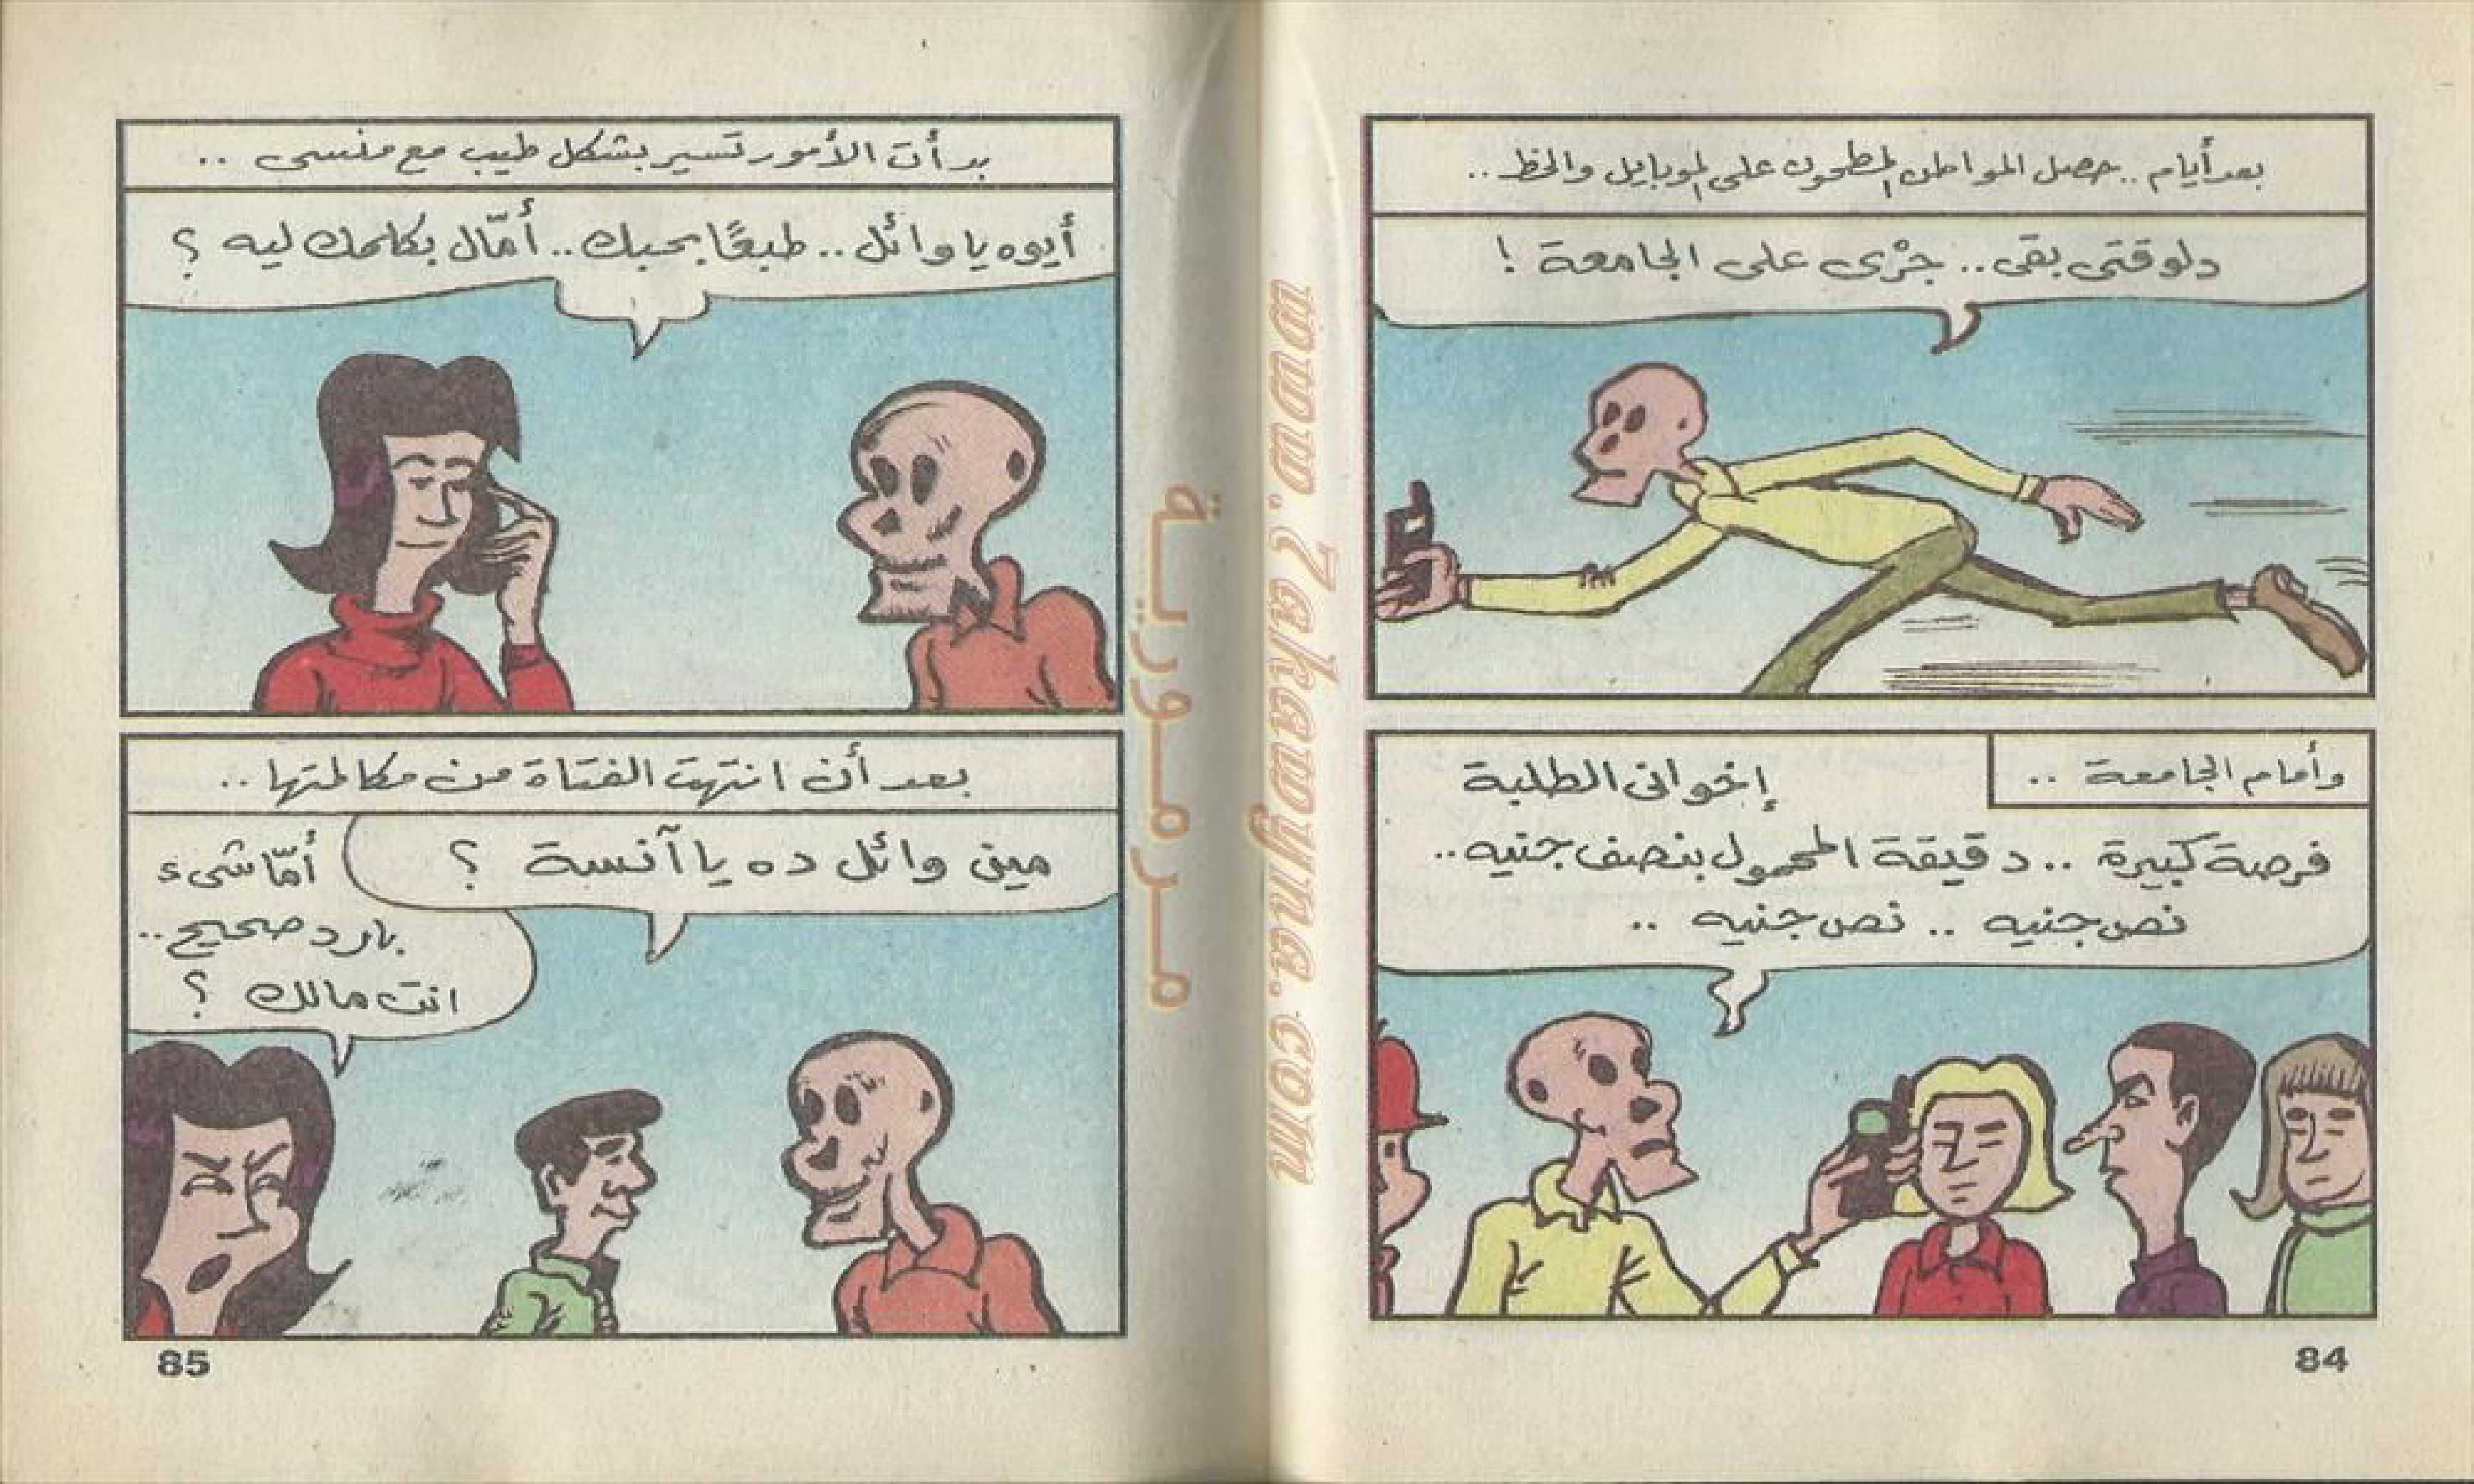 بعد أيام .. حصل المواطن المطحون على الموبايل والخط ..
دلوقتى بقى .. جرْى على الجامعة !
وأمام الجامعة ..
إخوانى الطلبة
فرصة كبيرة .. دقيقة المحمول بنصف جنيه ..
نص جنيه .. نص جنيه ..
84
بدأت الأمور تسير بشكل طيب مع منسى ..
أيوه يا وائل .. طبعًا بحبك .. أمّال بكلمك ليه ؟
بعد أن انتهت الفتاة من مكالمتها ..
مين وائل ده يا آنسة ؟
أمّا شىء
بارد صحيح ..
انت مالك ؟
85
مرمورية
www.7akawyna.com